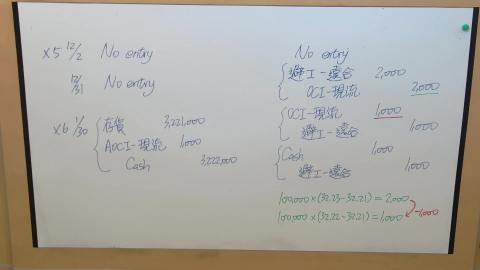 X5 12/2 No entry
12/31 No entry
X6 1/30 存貨 3,221,000
AOCI-現流 1,000
Cash 3,222,000
No entry
避工-遠合 2,000
OCI-現流 2,000
OCI-現流 1,000
避工-遠合 1,000
Cash 1,000
避工-遠合 1,000
100,000×(32.23-32.21)=2,000
100,000×(32.22-32.21)=1,000
-1,000